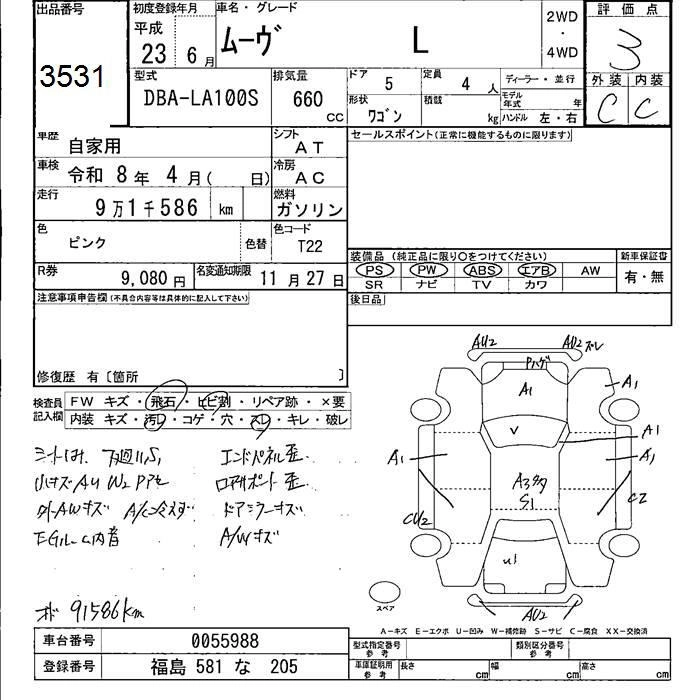 出品番号
3531
初度登録年月
平成
23 6月
車名・グレード
ムーヴ L
2WD
・
4WD
評価点
3
外装 内装
C C
型式
DBA-LA100S
排気量
660
CC
ドア 5
定員 4 人
ディーラー・並行
モデル年式 年
形状 ワゴン
積載 kg
ハンドル 左・右
車歴 自家用
シフト AT
セールスポイント(正常に機能するものに限ります)
車検 令和 8年 4月( 日)
冷房 AC
走行 9万1千586 km
燃料 ガソリン
色 ピンク 色替
色コード T22
装備品(純正品に限り○をつけてください)
新車保証書
PS PW ABS エアB AW
有・無
SR ナビ TV カワ
R券 9,080円
名変通知期限 11月27日
後日品
注意事項申告欄(不具合内容等は具体的に記入して下さい)
修復歴 有〔箇所 〕
検査員記入欄
FW キズ・飛石・ヒビ割・リペア跡・×要
内装 キズ・汚レ・コゲ・穴・スレ・キレ・破レ
下廻りS1 エンドパネル歪
小キズAU W2 Pアセ
ドアミラーキズ
A/Wキズ
EGルーム内音
91586km
AU2 AU2 ズレ
Pハゲ
A1 A1
V
A1 A1 A1
A3多
S1
CU2 C2
U1
AU2
スペア
A-キズ E-エクボ U-凹み W-補修跡 S-サビ C-腐食 XX-交換済
車台番号 0055988
登録番号 福島 581 な 205
型式指定番号参考
類別区分番号参考
車庫証明用参考
長さ cm
幅 cm
高さ cm